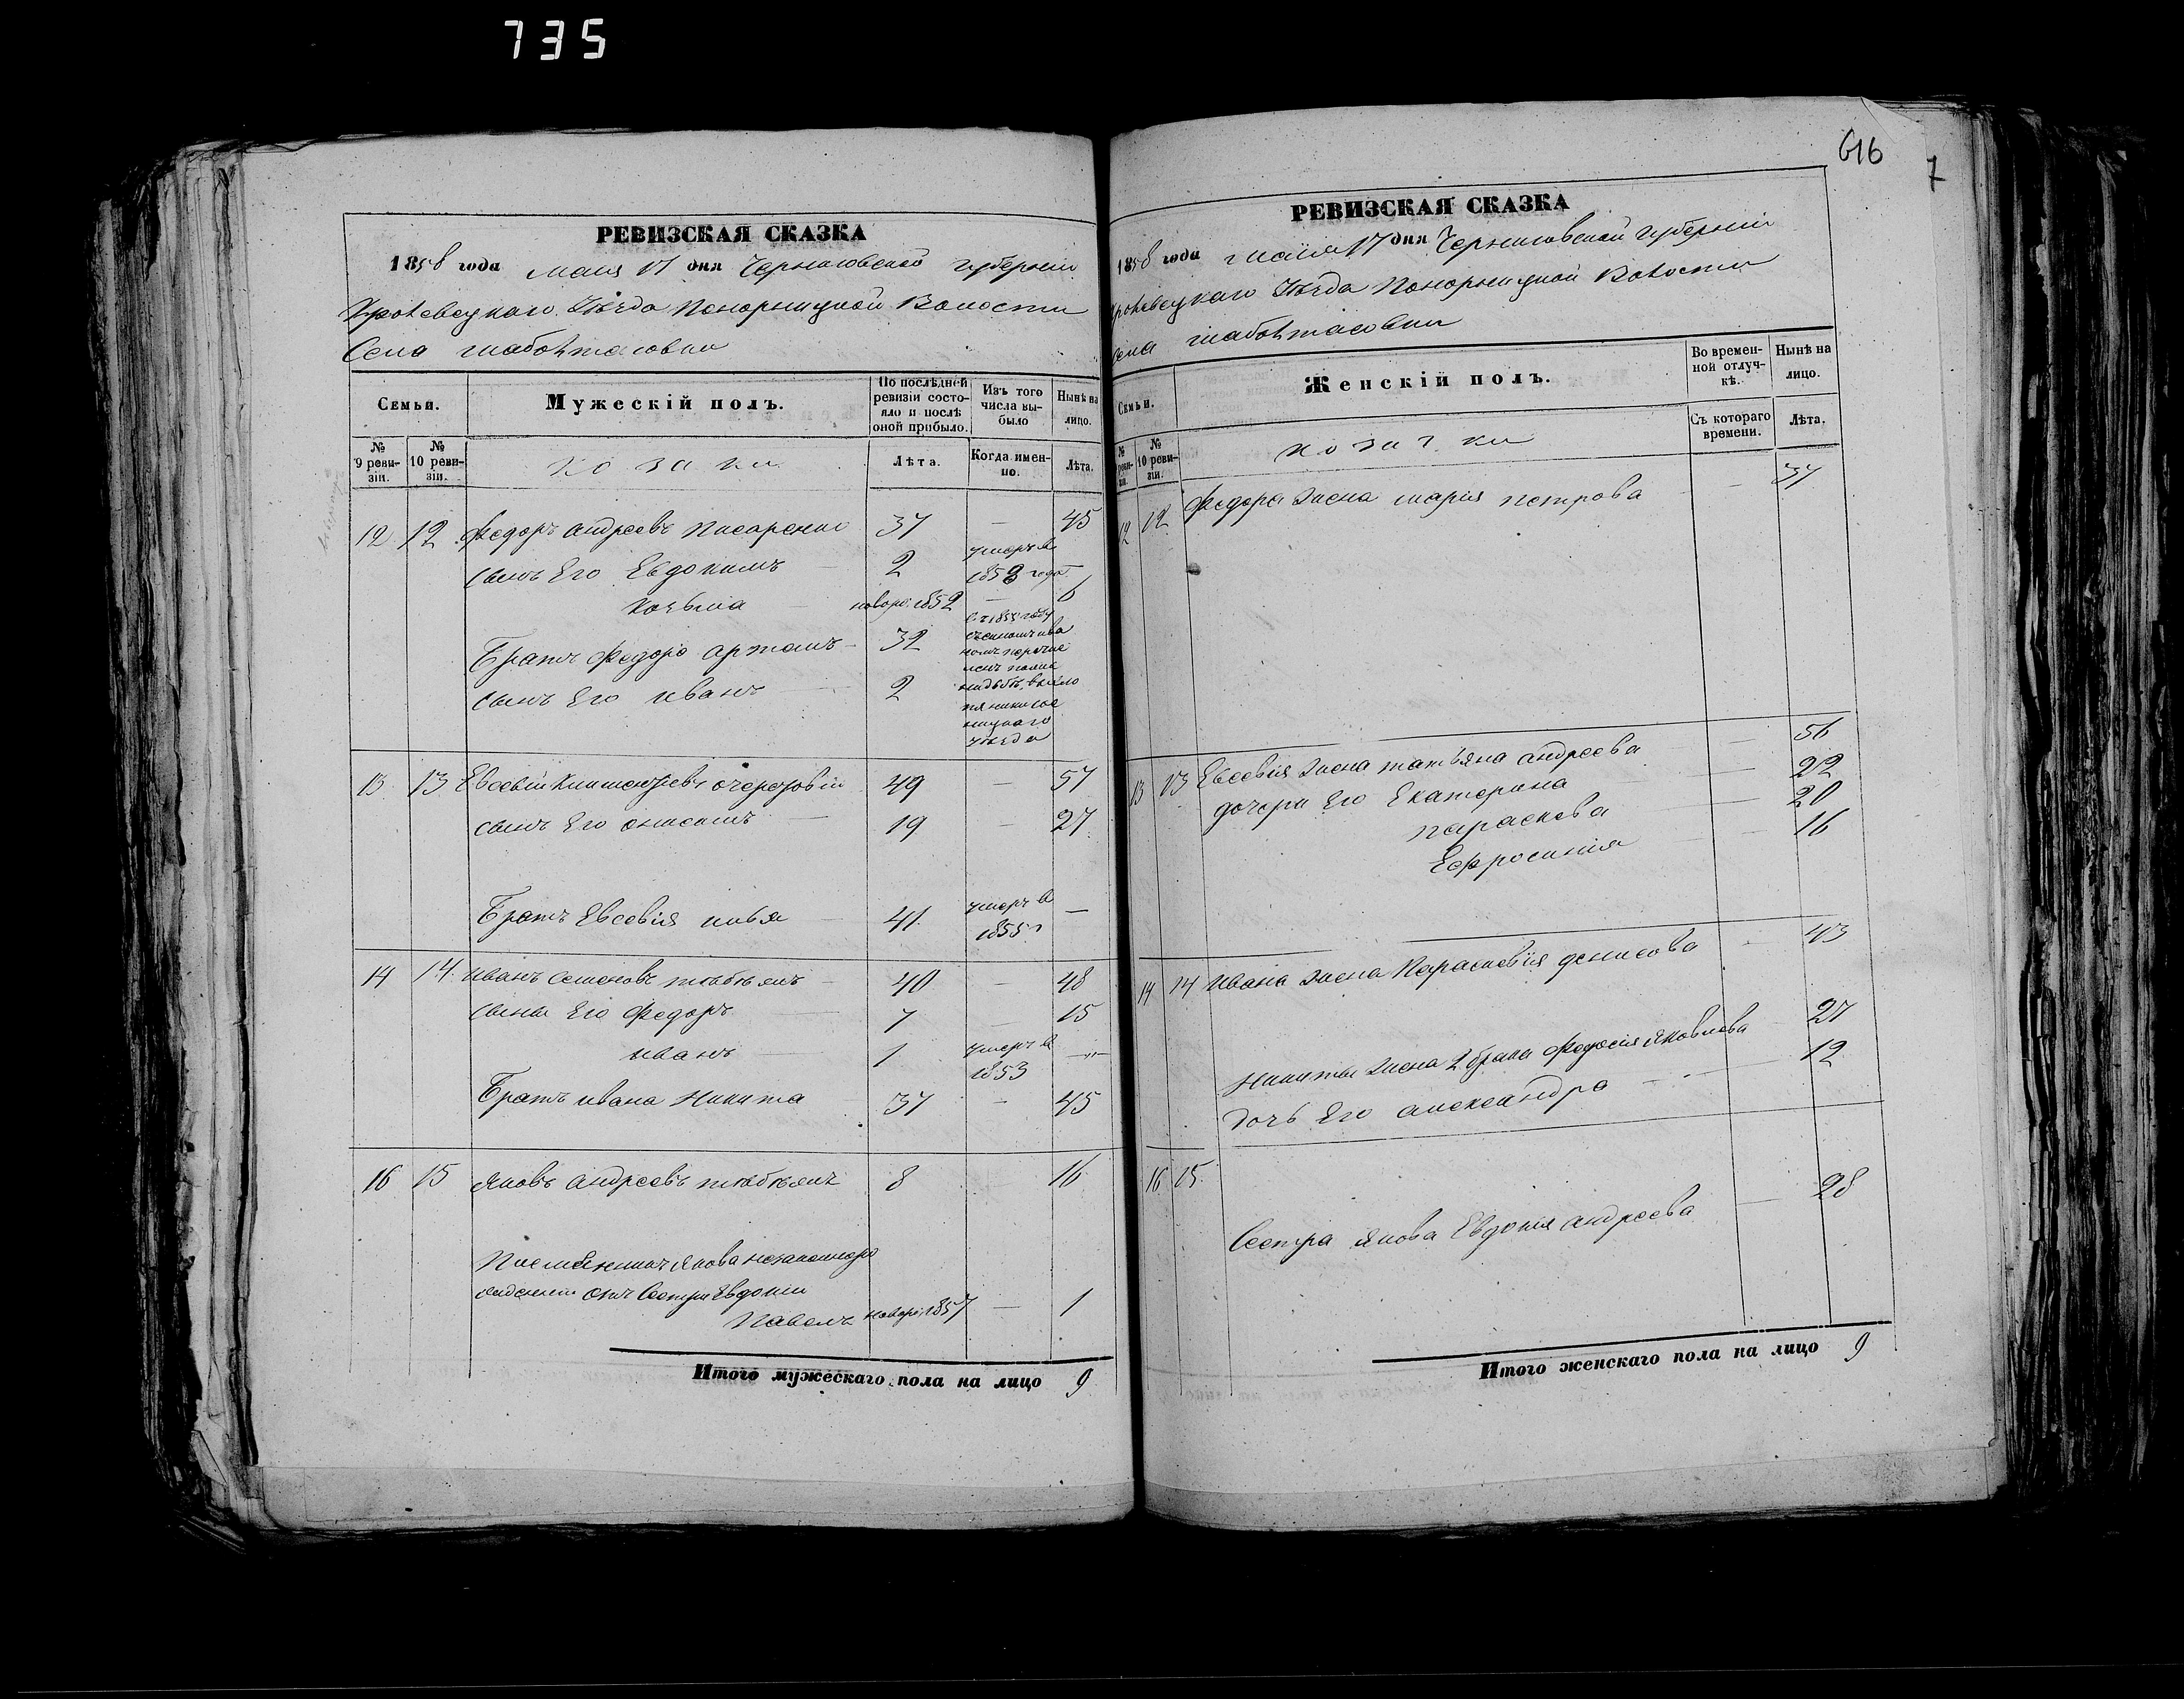 735
616
7
РЕВИЗСКАЯ СКАЗКА
1858 года мая 17 дня Черниговской губерніи
Кролевецкаго Уѣзда Понорницкой Волости
Села
Семьи.
Мужескій полъ.
По послѣдней ревизіи состояло и послѣ оной прибыло.
Изъ того числа выбыло
Нынѣ на лицо.
№ 9 ревизіи.
№ 10 ревизіи.
козаки
Лѣта.
Когда именно.
Лѣта.
12 12 Федоръ Андреевъ Писаренко 37 — 45
сынъ Его Евдокимъ 2 умеръ въ 1853 года
Козьма новоро. 1852 — 6
Братъ Федора Артемъ 32
сынъ Его Иванъ 2
въ 1855 году
уѣзда
13 13 Евсевій 49 — 57
сынъ Его Онисимъ 19 — 27
Братъ Евсевія Илья 41 умеръ в 1855 —
14 14 Иванъ Семеновъ 40 — 48
сыны Его Федоръ 7 — 15
Иванъ 1 умеръ в 1853 —
Братъ Ивана Никита 37 — 45
16 15 Яковъ Андреевъ 8 16
Племянникъ Якова незаконноро
жденный отъ Сестры Евдокіи
Павелъ новоро. 1857 — 1
Итого мужескаго пола на лицо 9
РЕВИЗСКАЯ СКАЗКА
1858 года мая 17 дня Черниговской губерніи
Кролевецкаго Уѣзда Понорницкой Волости
Села
Семьи.
Женскій полъ.
Во временной отлучкѣ.
Нынѣ на лицо.
№ 9 ревизіи.
№ 10 ревизіи.
козачки
Съ котораго времени.
Лѣта.
12 12 Федора жена Марія Петрова — 37
13 13 Евсевія жена Татьяна Андреева — 56
дочери Его Екатерина — 22
Параскева — 20
Ефросинія — 16
14 14 Ивана жена Параскевія Денисова 43
Никиты жена 2 брака Федосія Яковлева 27
дочь Его Александра — 12
16 15
Сестра Якова Евдокія Андреева — 28
Итого женскаго пола на лицо 9